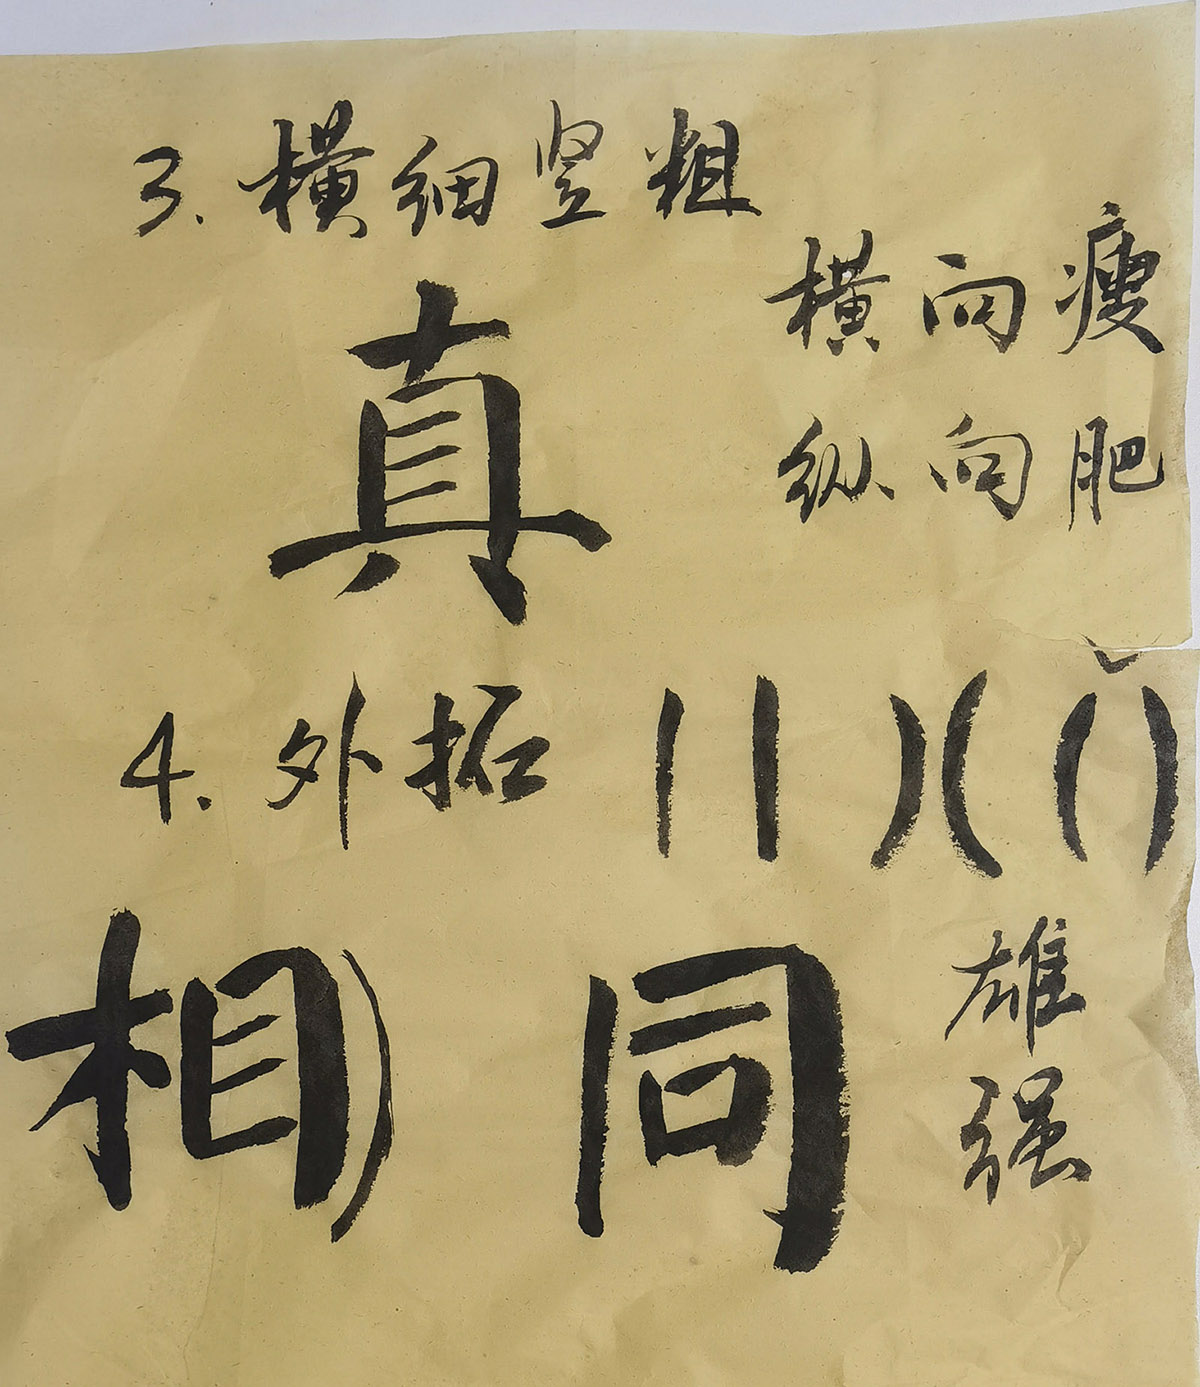 3.横细竖粗
横向瘦
真
纵向肥
4.外拓
相同
雄
强